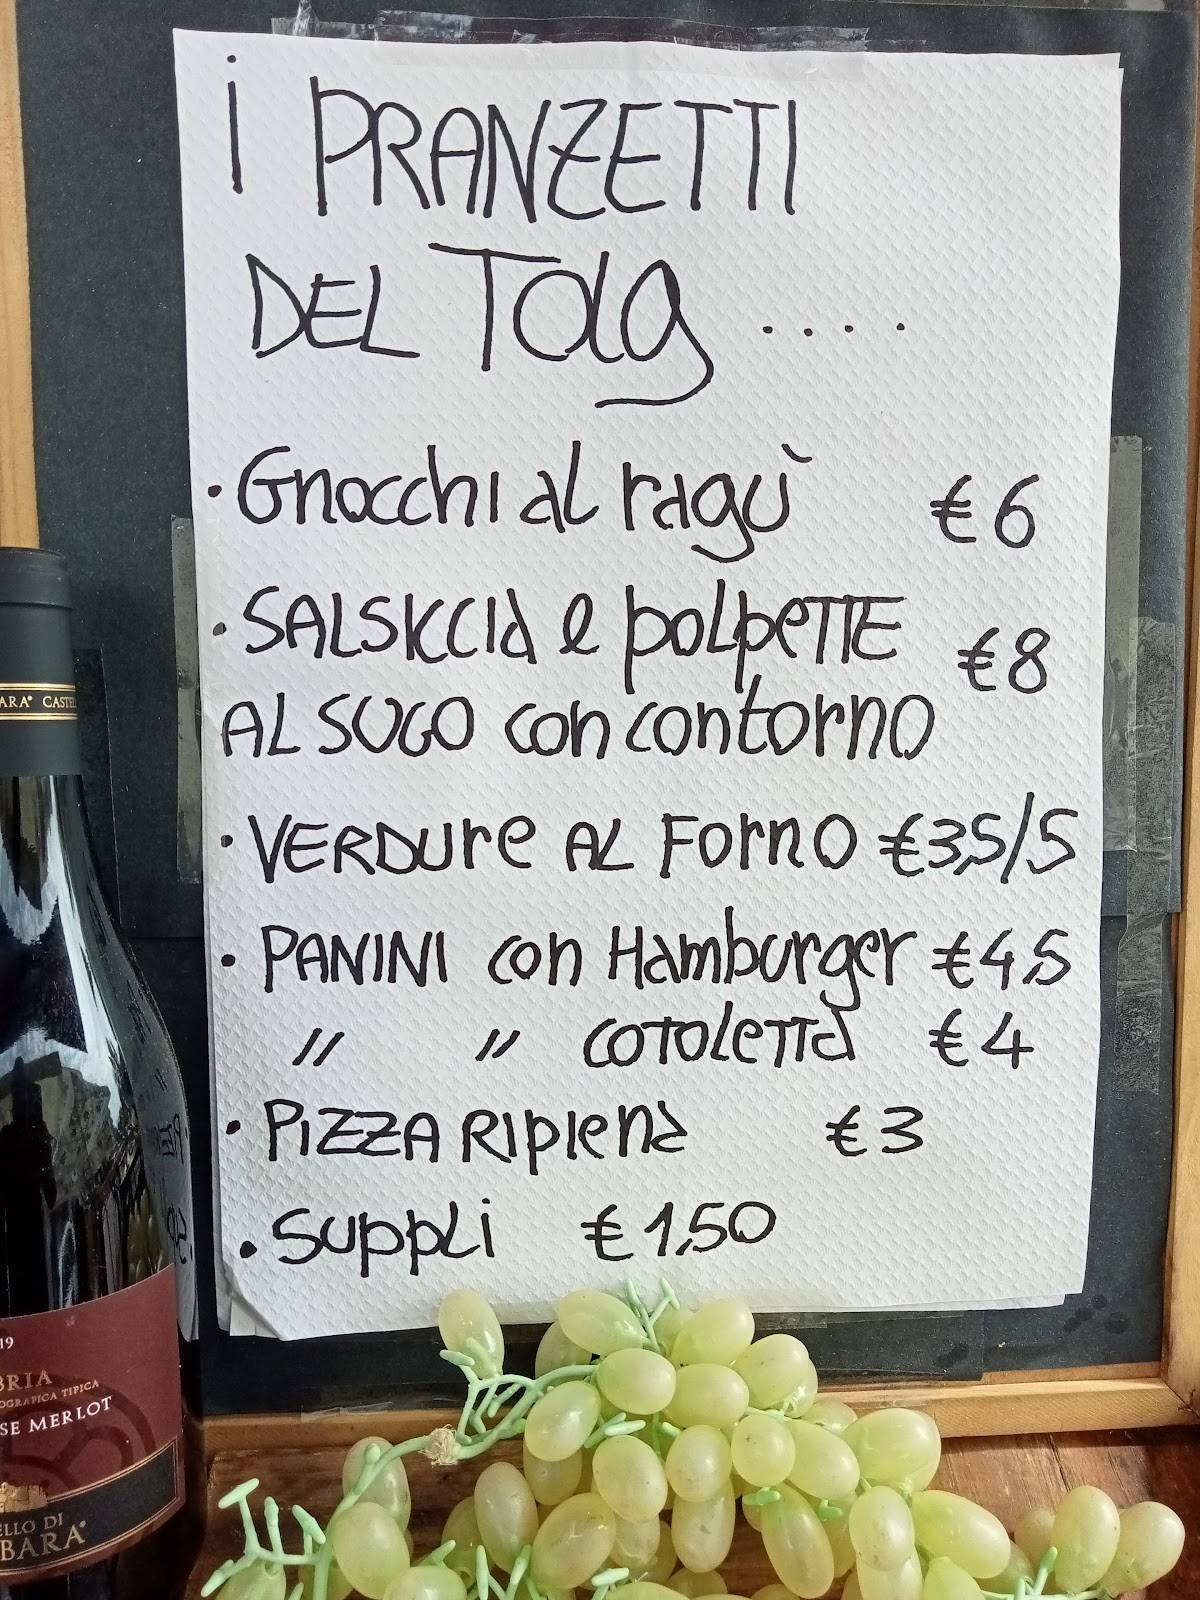 i PRANZETTI
DEL Tolg ....
• Gnocchi al ragù € 6
• SALSICCIA e polpette €8
AL SUGO con contorno
• VERDURe AL Forno €3,5/5
• PANINI con Hamburger €4,5
" " COTOLETTA €4
• PIZZA RIPIENA €3
• Supplì €1,50
ARA® CASTEL
19
BRIA
OGRAFICA TIPICA
SE MERLOT
ELLO DI
BARA®